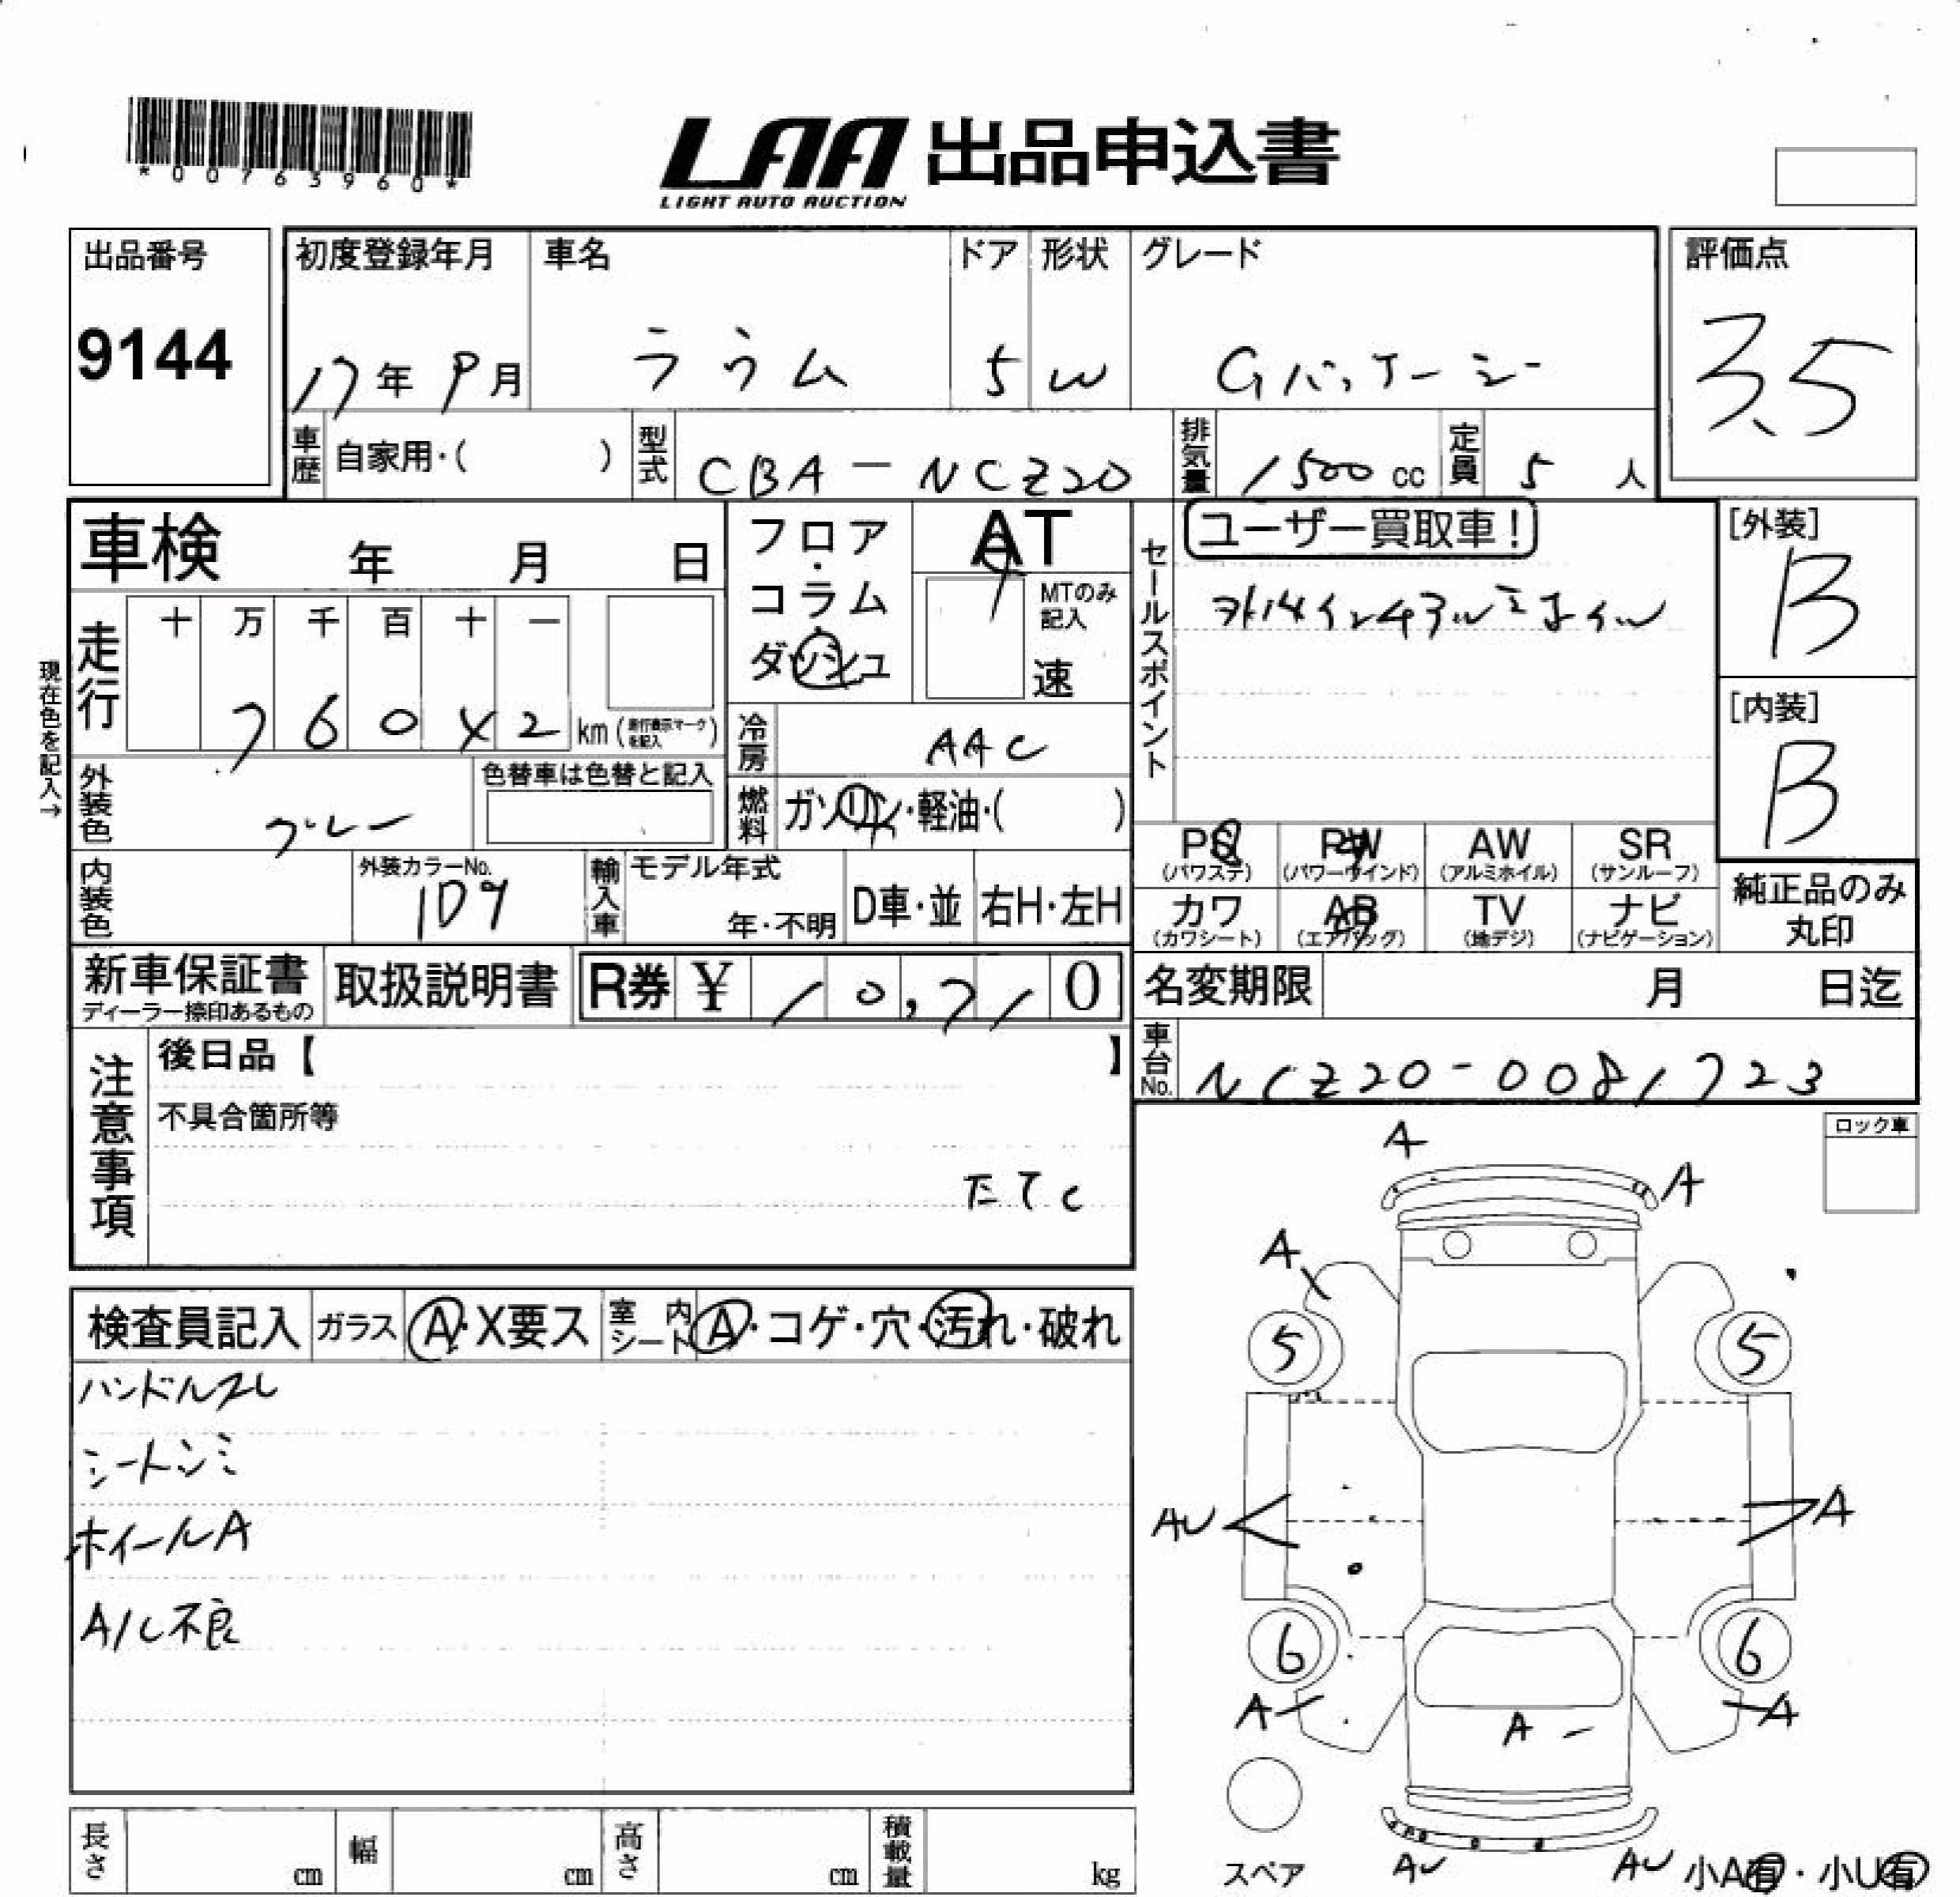 *00763960*
LAA 出品申込書
LIGHT AUTO AUCTION
出品番号
9144
初度登録年月
17年 9月
車名
ラウム
ドア
5
形状
W
グレード
Gパッケージ
評価点
3.5
車歴 自家用・( )
型式 CBA-NCZ20
排気量 1500 cc
定員 5 人
車検 年 月 日
フロア・コラム
ダッシュ
AT
MTのみ記入
速
セールスポイント
ユーザー買取車!
[外装]
B
[内装]
B
現在色を記入→
走行
十 万 千 百 十 一
7 6 0 4 2 km (走行表示マークを記入)
冷房 AAC
外装色 グレー
色替車は色替と記入
燃料 ガソリン・軽油・( )
PS (パワステ)
PW (パワーウインド)
AW (アルミホイル)
SR (サンルーフ)
内装色
外装カラーNo.
1D9
輸入車
モデル年式
年・不明
D車・並
右H・左H
カワ (カワシート)
AB (エアバッグ)
TV (地デジ)
ナビ (ナビゲーション)
純正品のみ丸印
新車保証書
ディーラー捺印あるもの
取扱説明書
R券 ¥ 10,710
名変期限 月 日迄
車台No. NCZ20-0081723
注意事項
後日品【 】
不具合箇所等
ETC
ロック車
検査員記入
ガラス A・X要ス
室内シート A・コゲ・穴・汚れ・破れ
ハンドルスレ
シートシミ
ホイールA
A/C不良
A
A
A
5
5
AU
A
6
6
A
A
A
スペア
AU
AU
小A有・小U有
長さ cm
幅 cm
高さ cm
積載量 kg